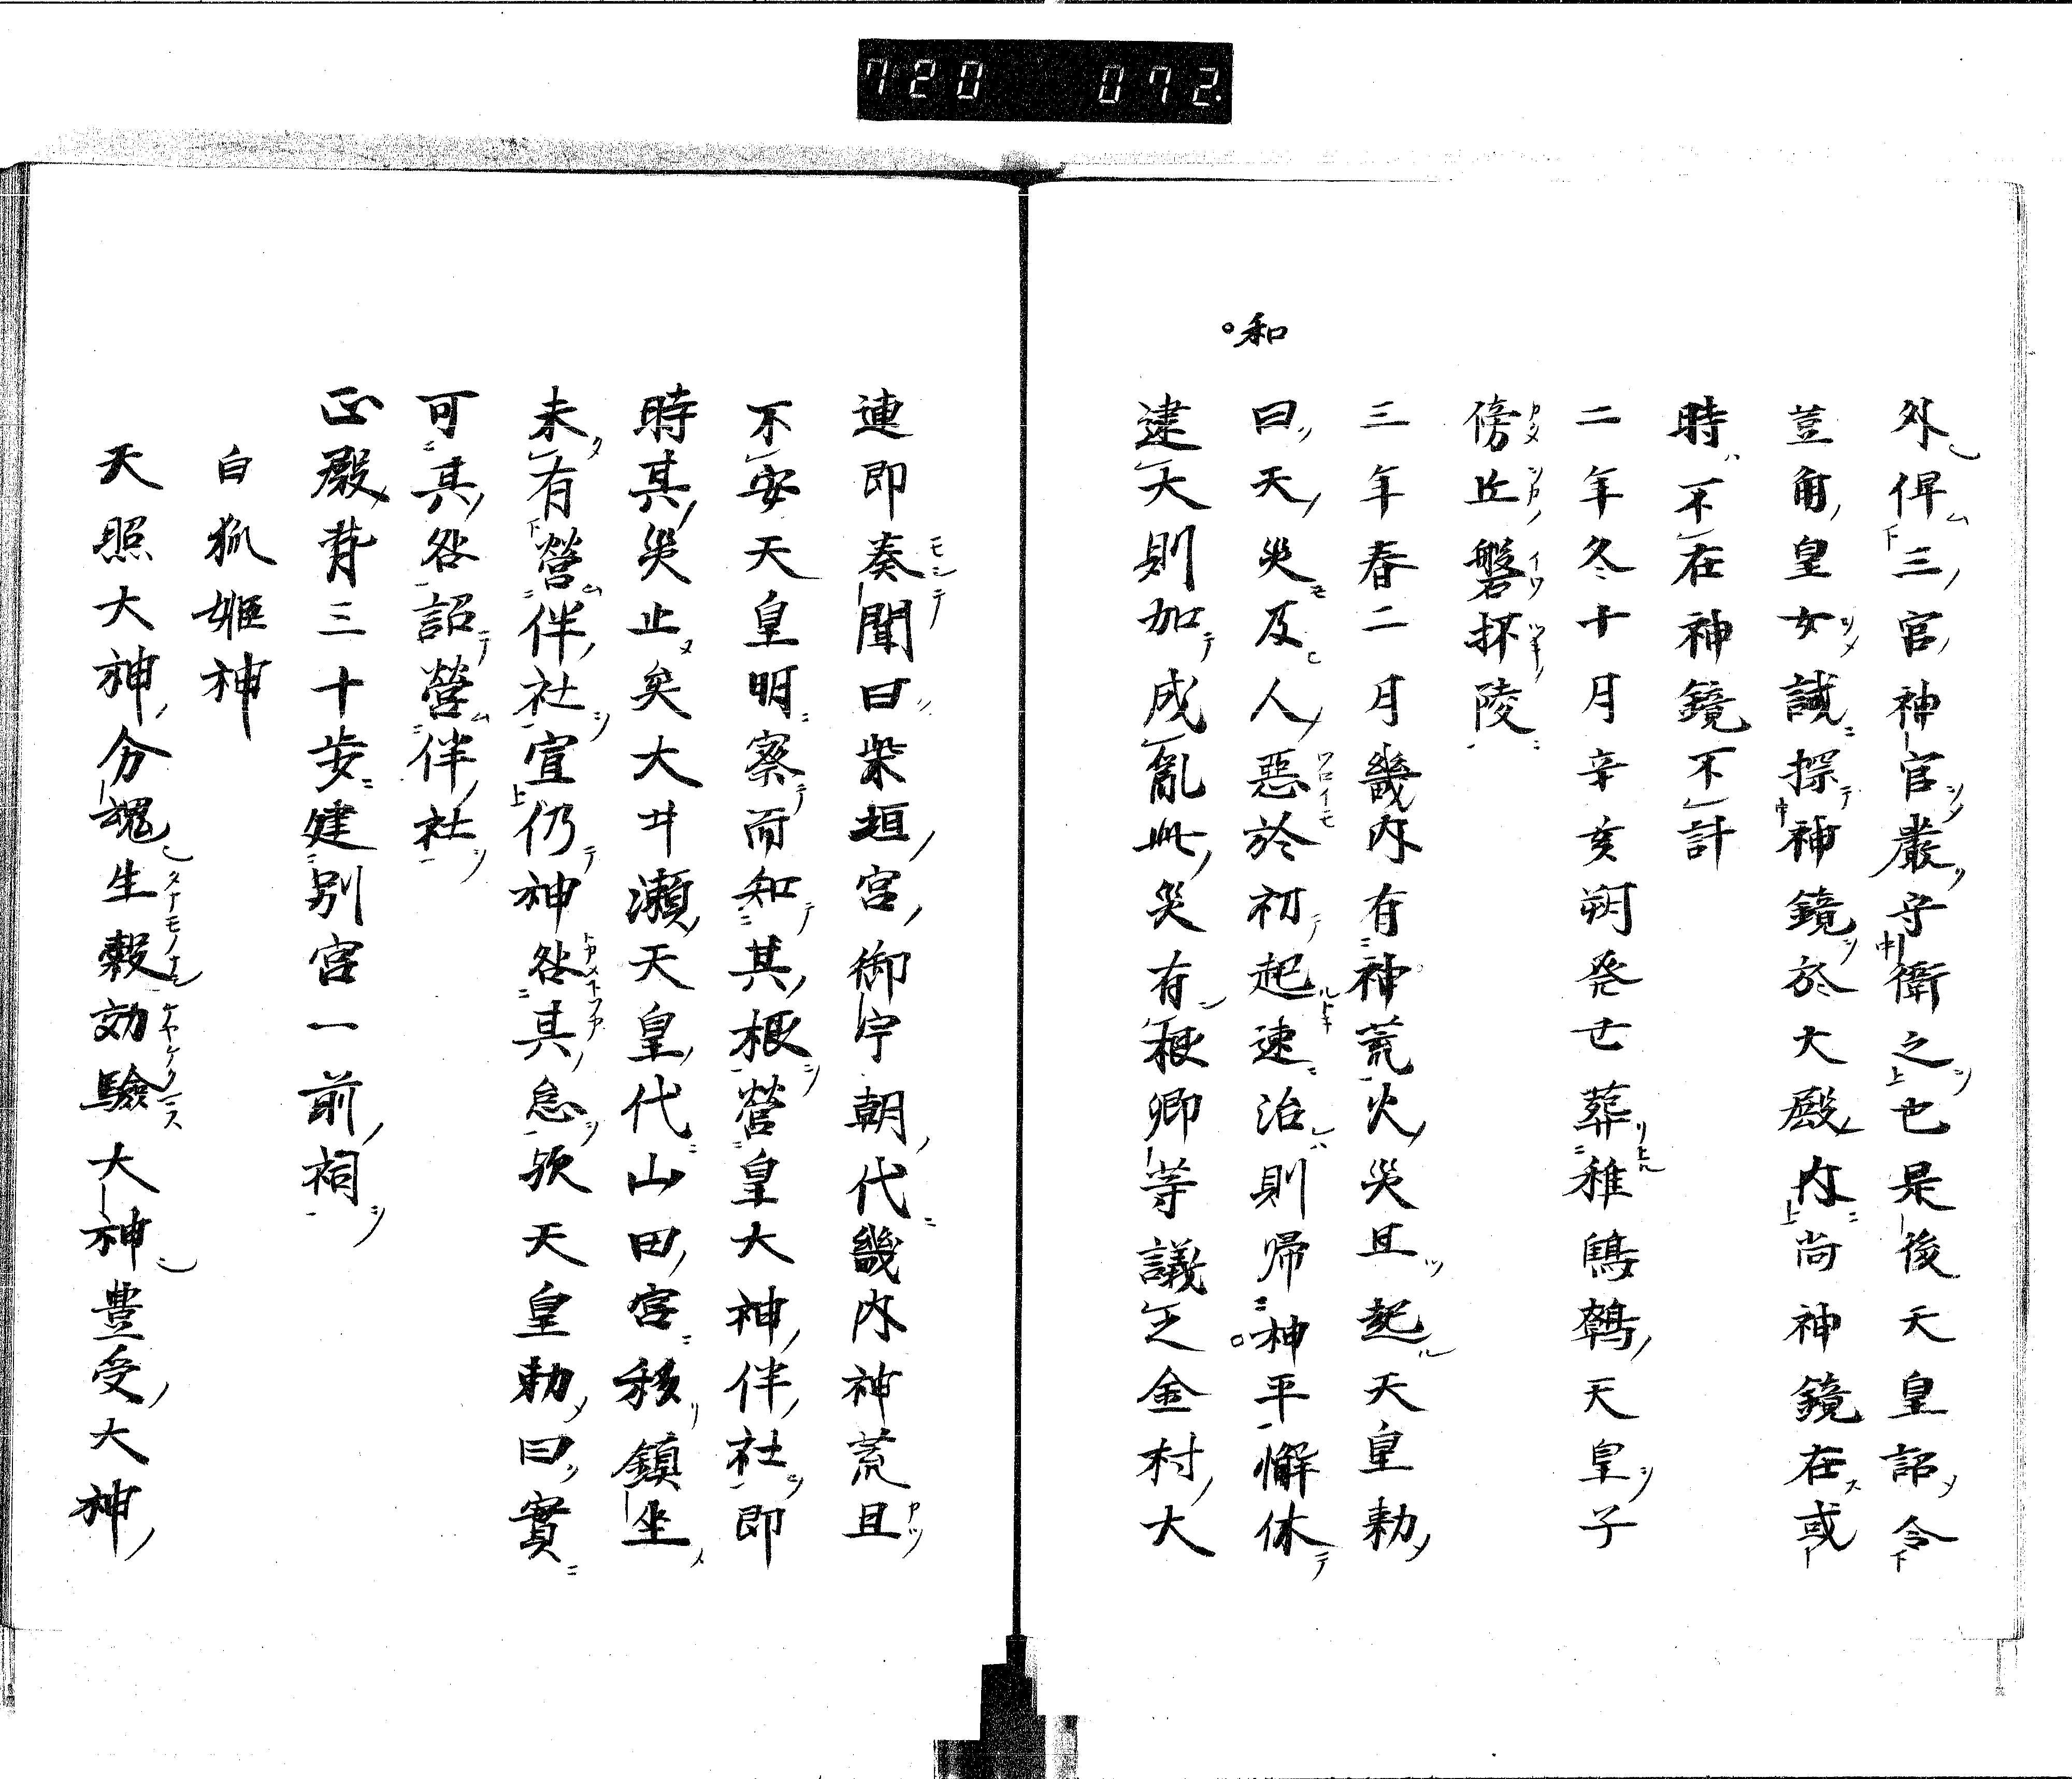 720 072.
外俾三官神官嚴守衛之也是後天皇詔令
荳角皇女誠探神鏡於大殿内尚神鏡在或
時不在神鏡不計
二年冬十月辛亥朔癸丑葬稚鷦鷯天皇子
傍丘磐坏陵
三年春二月畿内有神荒火災且起天皇勅
和
曰天災及人惡於初起速治則帰神平懈休
逮大則加成亂此災有根卿等議之金村大
連即奏聞曰柴垣宮御宇朝代畿内神荒且
不安天皇明察而知其根營皇大神伴社即
時其災止矣大井瀬天皇代山田宮移鎮坐
未有營伴社宣仍神咎其怠欤天皇勅曰實
可其咎詔營伴社
正殿背三十歩建別宮一前祠
白狐姫神
天照大神分魂生穀効驗大神豊受大神